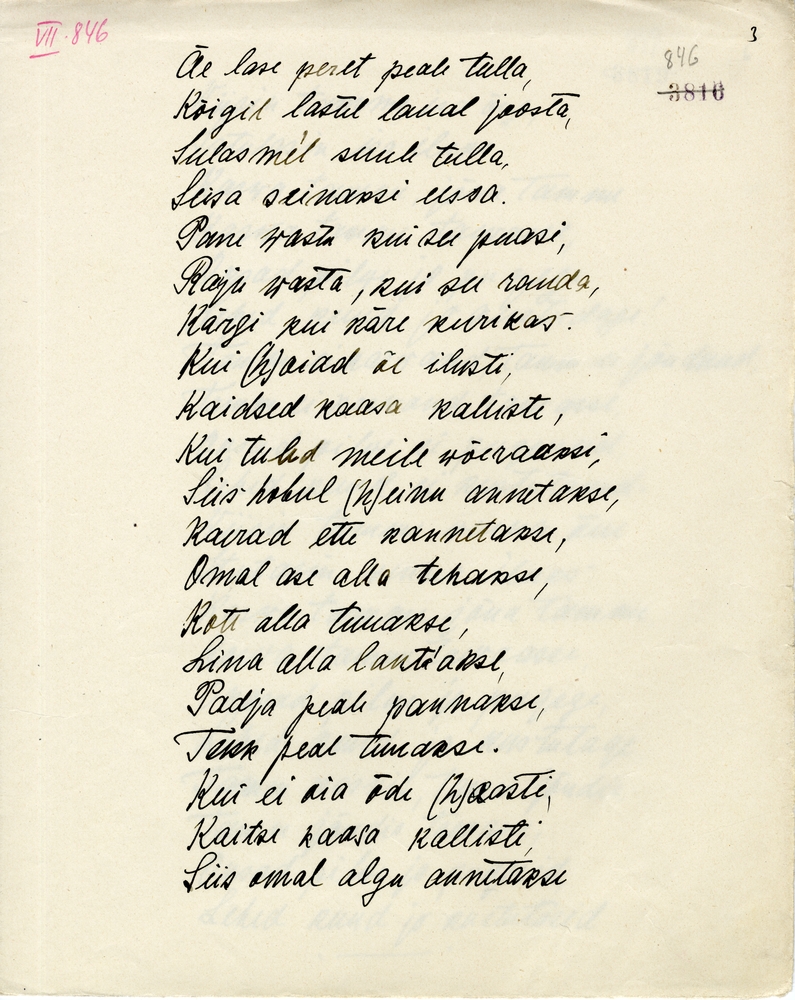 VII. 846
3
846
3816
Äe lase peret peale tulla,
Kõigil lastel laual joosta,
Sulasmel suule tulla,
Seisa seinaksi eesa.
Pane wasta kui see puasi,
Raju wasta, kui see randa,
Kärgi kui käre kurikas.
Kui (h)oiad õe ilusti,
Kaidsed kaasa kalliste,
Kui tuled meile wõeraaksi,
Siis hobul (h)einu annetakse,
Kaerad ette kannetakse,
Omal ase alla tehakse,
Kott alla tuuakse,
Lina alla lauta'akse,
Padja peale pannakse,
Tekk peal tuuakse.
Kui ei oia õde (h)æasti,
Kaitse kaasa kallisti,
Siis omal algu annetakse